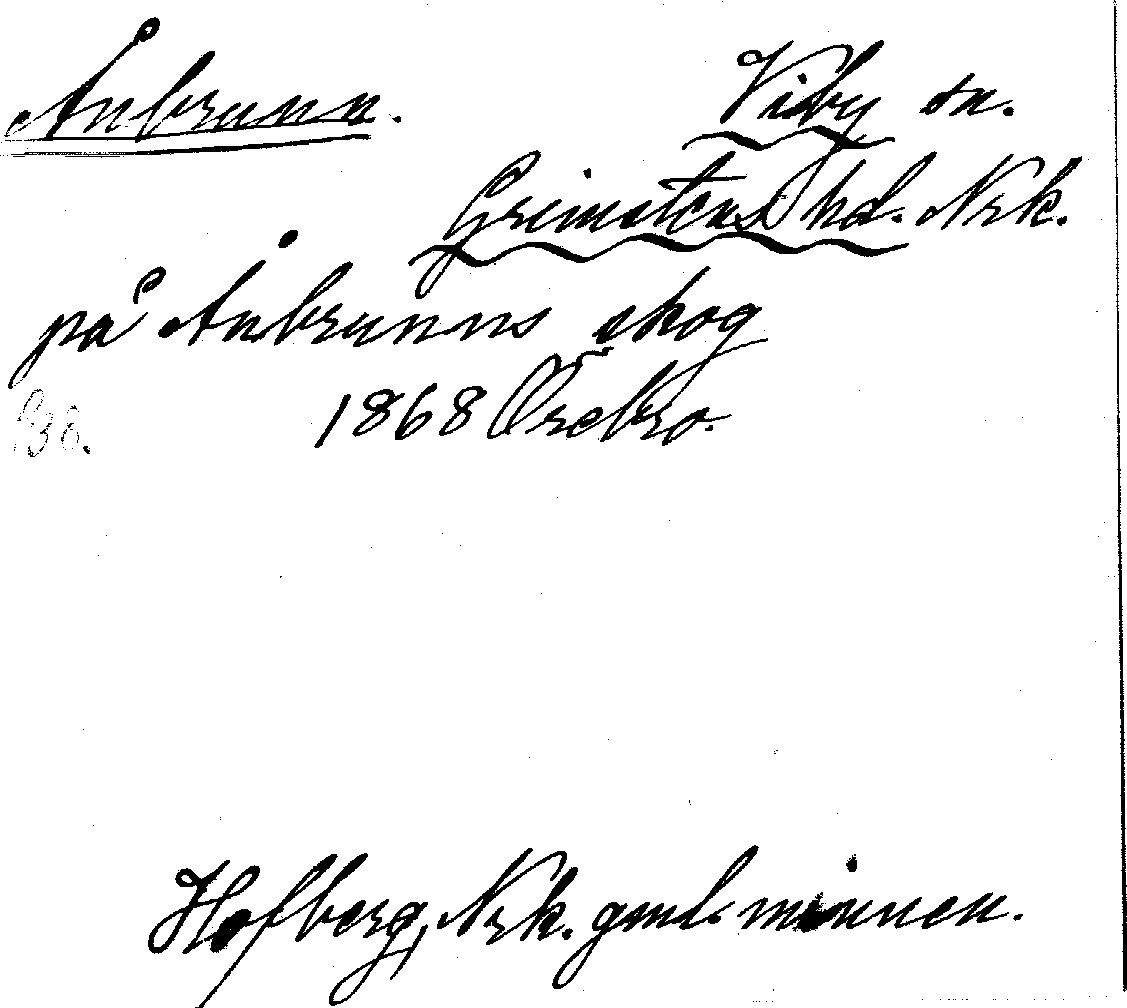 Ånbrunn.
Viby sn.
Grimstens hd. Nrk.
på Ånbrunns skog
1868 Örebro.
Hofberg, Nrk. gml. minnen.